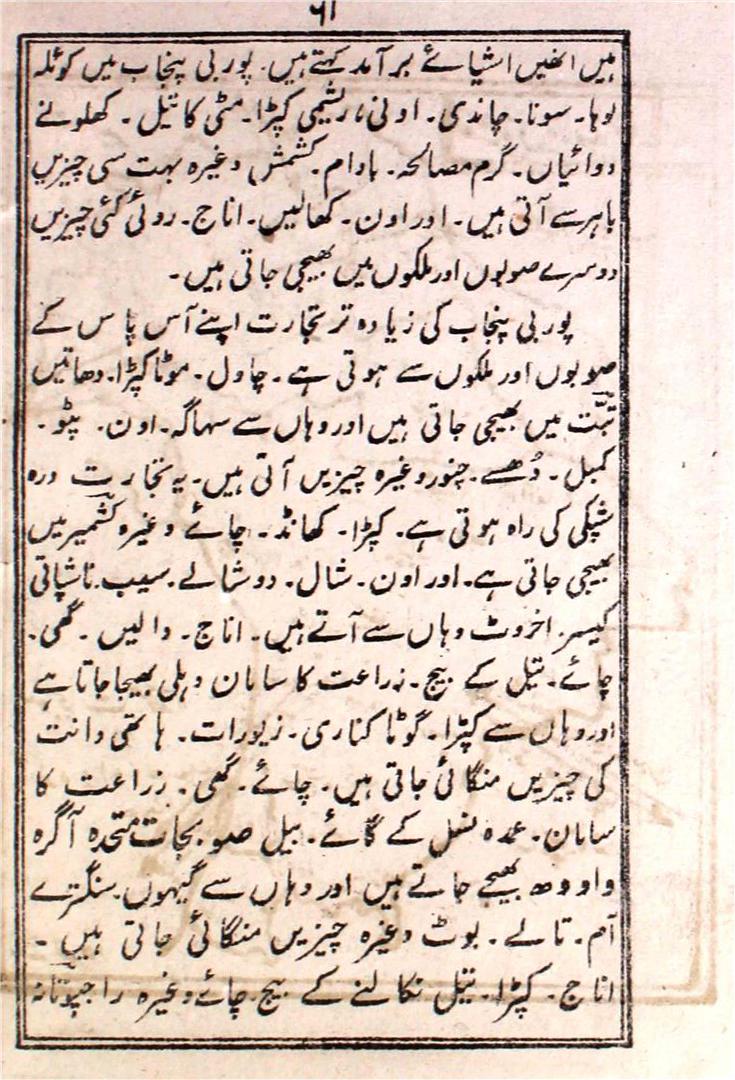 ۶۱
ہیں انھیں اشیائے برآمد کہتے ہیں۔ پوربی پنجاب میں کوئلہ
لوہا۔ سونا۔ چاندی۔ اونی، ریشمی کپڑا۔ مٹی کا تیل۔ کھلونے
دوائیاں۔ گرم مصالحہ۔ بادام۔ کشمش وغیرہ بہت سی چیزیں
باہر سے آتی ہیں۔ اور اون۔ کھالیں۔ اناج۔ روئی کئی چیزیں
دوسرے صوبوں اور ملکوں میں بھیجی جاتی ہیں۔
پوربی پنجاب کی زیادہ تر تجارت اپنے آس پاس کے
صوبوں اور ملکوں سے ہوتی ہے۔ چاول۔ موٹا کپڑا۔ دھاتیں
تبّت میں بھیجی جاتی ہیں اور وہاں سے سہاگہ۔ اون۔ پٹو۔
کمبل۔ دُھسے۔ چنور وغیرہ چیزیں آتی ہیں۔ یہ تجارت درہ
شپکی کی راہ ہوتی ہے۔ کپڑا۔ کھانڈ۔ چائے وغیرہ کشمیر میں
بھیجی جاتی ہے۔ اور اون۔ شال۔ دوشالے۔ سیب۔ ناشپاتی
کیسر۔ اخروٹ وہاں سے آتے ہیں۔ اناج۔ دالیں۔ گھی۔
چائے۔ تیل کے بیج۔ زراعت کا سامان دہلی بھیجا جاتا ہے
اور وہاں سے کپڑا۔ گوٹا کناری۔ زیورات۔ ہاتھی دانت
کی چیزیں منگائی جاتی ہیں۔ چائے۔ گھی۔ زراعت کا
سامان۔ عمدہ نسل کے گائے۔ بیل صوبجات متحدہ آگرہ
و اودھ بھیجے جاتے ہیں اور وہاں سے گیہوں۔ سنگترے
آم۔ تالے۔ بوٹ وغیرہ چیزیں منگائی جاتی ہیں۔
اناج۔ کپڑا۔ تیل نکالنے کے بیج۔ چائے وغیرہ راجپوتانہ